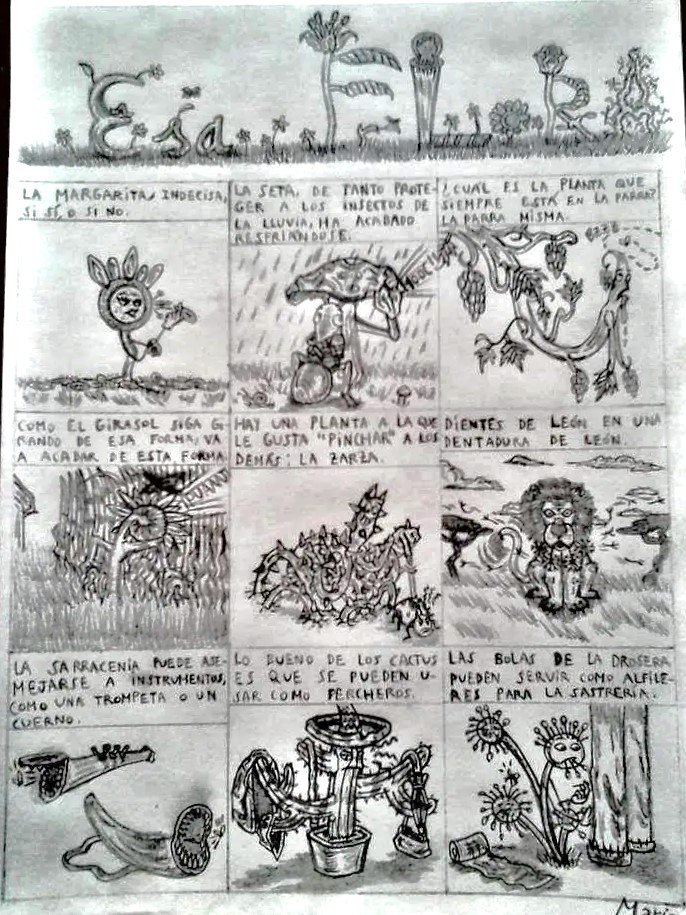 Esa FLORA
LA MARGARITA INDECISA,
SI SÍ, O SI NO.
LA SETA, DE TANTO PROTE-
GER A LOS INSECTOS DE
LA LLUVIA, HA ACABADO
RESFRIÁNDOSE.
¿CUAL ES LA PLANTA QUE
SIEMPRE ESTÁ EN LA PARRA?
LA PARRA MISMA.
BZZZ
COMO EL GIRASOL SIGA GI-
RANDO DE ESA FORMA, VA
A ACABAR DE ESTA FORMA.
HAY UNA PLANTA A LA QUE
LE GUSTA "PINCHAR" A LOS
DEMÁS: LA ZARZA.
DIENTES DE LEÓN EN UNA
DENTADURA DE LEÓN.
LA SARRACENIA PUEDE ASE-
MEJARSE A INSTRUMENTOS,
COMO UNA TROMPETA O UN
CUERNO.
LO BUENO DE LOS CACTUS
ES QUE SE PUEDEN U-
SAR COMO PERCHEROS.
LAS BOLAS DE LA DROSERA
PUEDEN SERVIR COMO ALFILE-
RES PARA LA SASTRERÍA.